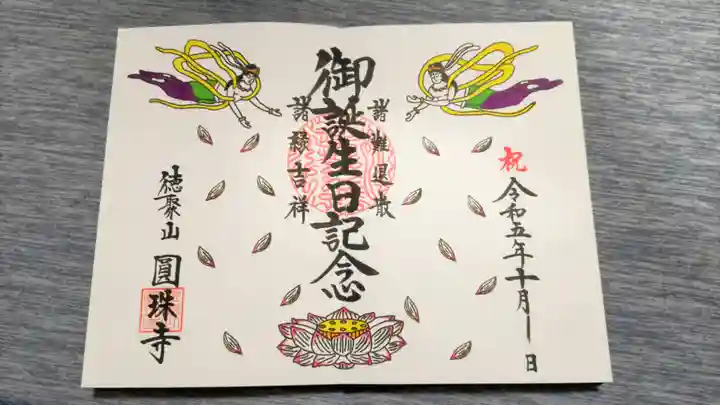 祝
令和五年十月一日
諸難退散
御誕生日記念
諸縁吉祥
徳聚山
圓珠寺